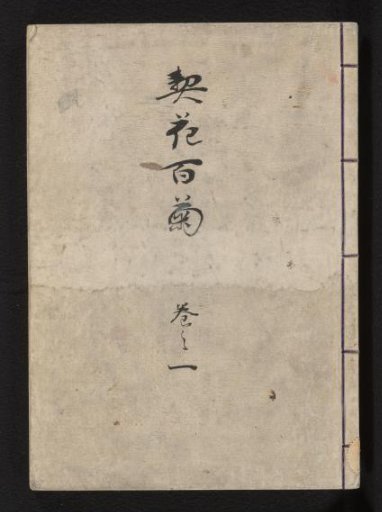 契花百菊 巻之一